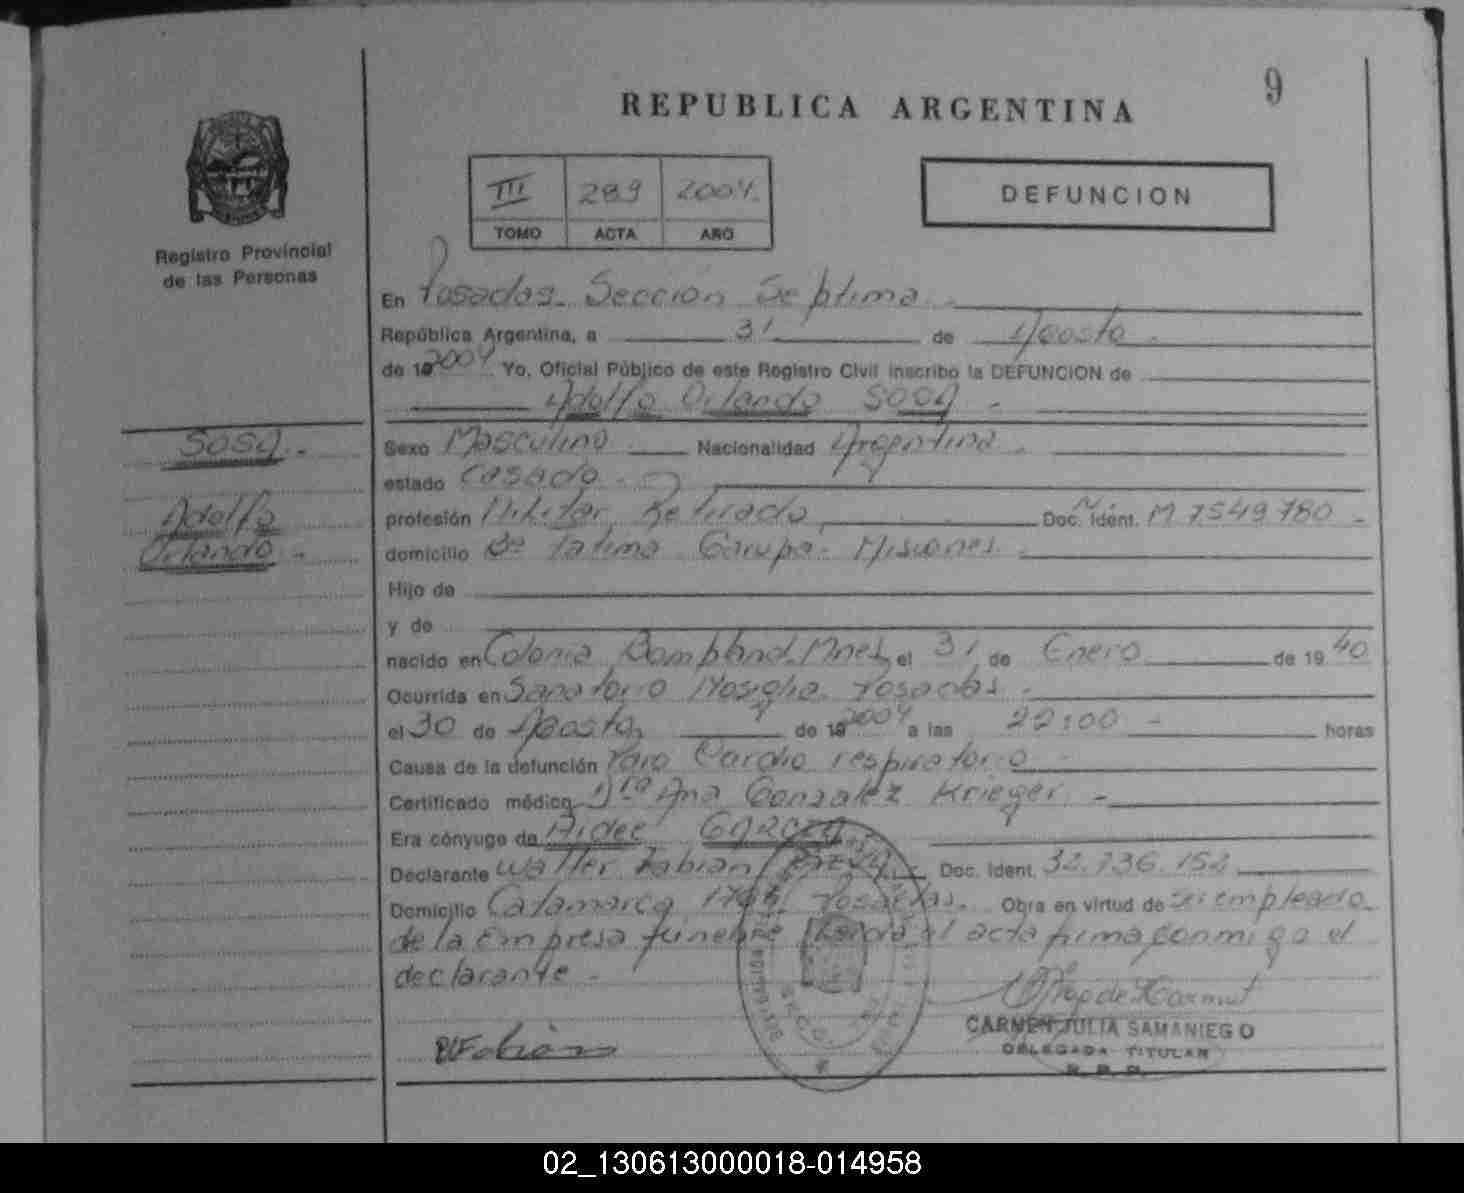 9
REPUBLICA ARGENTINA
III 289 2004.
TOMO ACTA AÑO
DEFUNCION
Registro Provincial
de las Personas
En Posadas. Sección Septima
República Argentina, a 31 de Agosto
de 19 2004 Yo, Oficial Público de este Registro Civil inscribo la DEFUNCION de
Adolfo Orlando SOSA
SOSA.
Adolfo
Orlando
Sexo Masculino Nacionalidad Argentina
estado Casado
profesión Militar Retirado Doc. Ident. M. 7.549.780
domicilio Bº Fatima Garupa. Misiones.
Hijo de
y de
nacido en Colonia Bompland. Mnes. el 31 de Enero de 19 40
Ocurrida en Sanatorio Posadas.
el 30 de Agosto de 19 2004 a las 22:00 horas
Causa de la defunción Paro Cardio respiratorio
Certificado médico Dra Ana Gonzalez Krieger.
Era cónyuge de Aidee GARCIA
Declarante Walter Fabian Doc. Ident. 32.736.152
Domicilio Catamarca Posadas. Obra en virtud de Ser empleado
de la Empresa fúnebre al acta firma conmigo el
declarante
CARMEN JULIA SAMANIEGO
DELEGADA TITULAR
R. P. P.
02_130613000018-014958